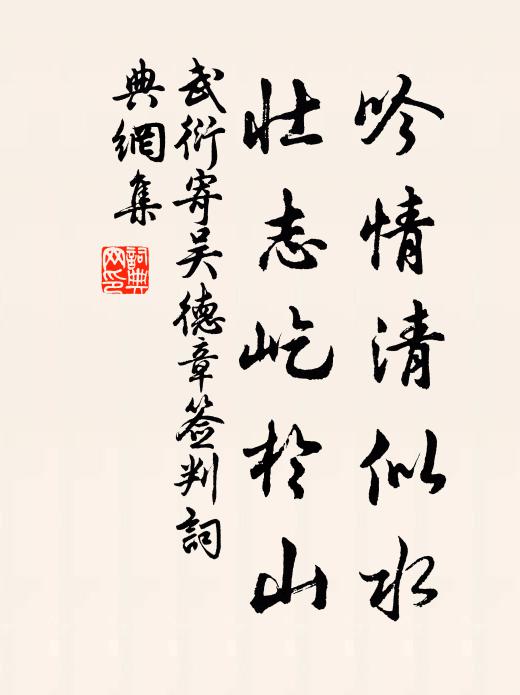 吟情清似水
壮志屹於山
武衍寄吴德章签判詞
典網集
詞典
网印